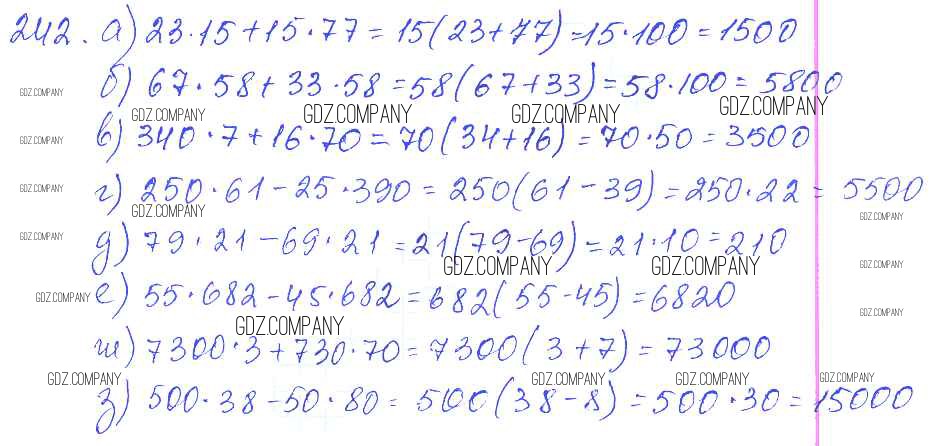 242. а) 23·15+15·77=15(23+77)=15·100=1500
б) 67·58+33·58=58(67+33)=58·100=5800
GDZ.COMPANY
GDZ.COMPANY GDZ.COMPANY GDZ.COMPANY GDZ.COMPANY
в) 340·7+16·70=70(34+16)=70·50=3500
GDZ.COMPANY
г) 250·61-25·390=250(61-39)=250·22=5500
GDZ.COMPANY
GDZ.COMPANY GDZ.COMPANY
д) 79·21-69·21=21(79-69)=21·10=210
GDZ.COMPANY
GDZ.COMPANY GDZ.COMPANY GDZ.COMPANY
е) 55·682-45·682=682(55-45)=6820
GDZ.COMPANY
GDZ.COMPANY GDZ.COMPANY
ж) 7300·3+730·70=7300(3+7)=73000
GDZ.COMPANY GDZ.COMPANY GDZ.COMPANY GDZ.COMPANY
з) 500·38-50·80=500(38-8)=500·30=15000